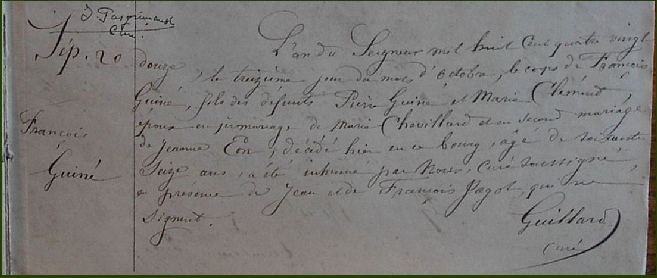 J. Pasquinaud
Curé
Sép. 20
François
Guiné
L'an du Seigneur mil huit cent quatre vingt
douze, le treizième jour du mois d'octobre, le corps de François
Guiné, fils des défunts Pierre Guiné et Marie
époux en 1er mariage de Marie Chovillard et en second mariage
de Jeanne Eon, décédé hier en ce bourg, âgé de soixante
Seize ans, a été inhumé par Nous, Curé soussigné,
en présence de Jean et de François Pagot qui ne
signent.
Guillard
curé